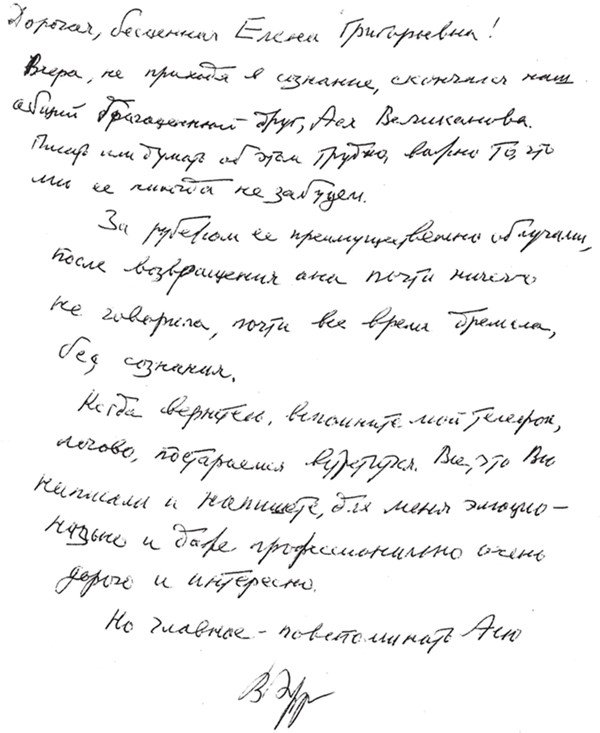 Дорогая, бесценная Елена Григорьевна!
Вчера, не приходя в сознание, скончался наш
общий драгоценный друг, Ася Великанова.
Писать или думать об этом трудно, важно то, что
мы ее никогда не забудем.
За рубежом ее преимущественно облучали,
после возвращения она почти ничего
не говорила, почти все время дремала,
без сознания.
Когда вернетесь, вспомните мой телефон,
постараемся встретиться. Все, что Вы
написали и напишете, для меня эмоцио-
нально и даже профессионально очень
дорого и интересно.
Но главное - повспоминать Асю